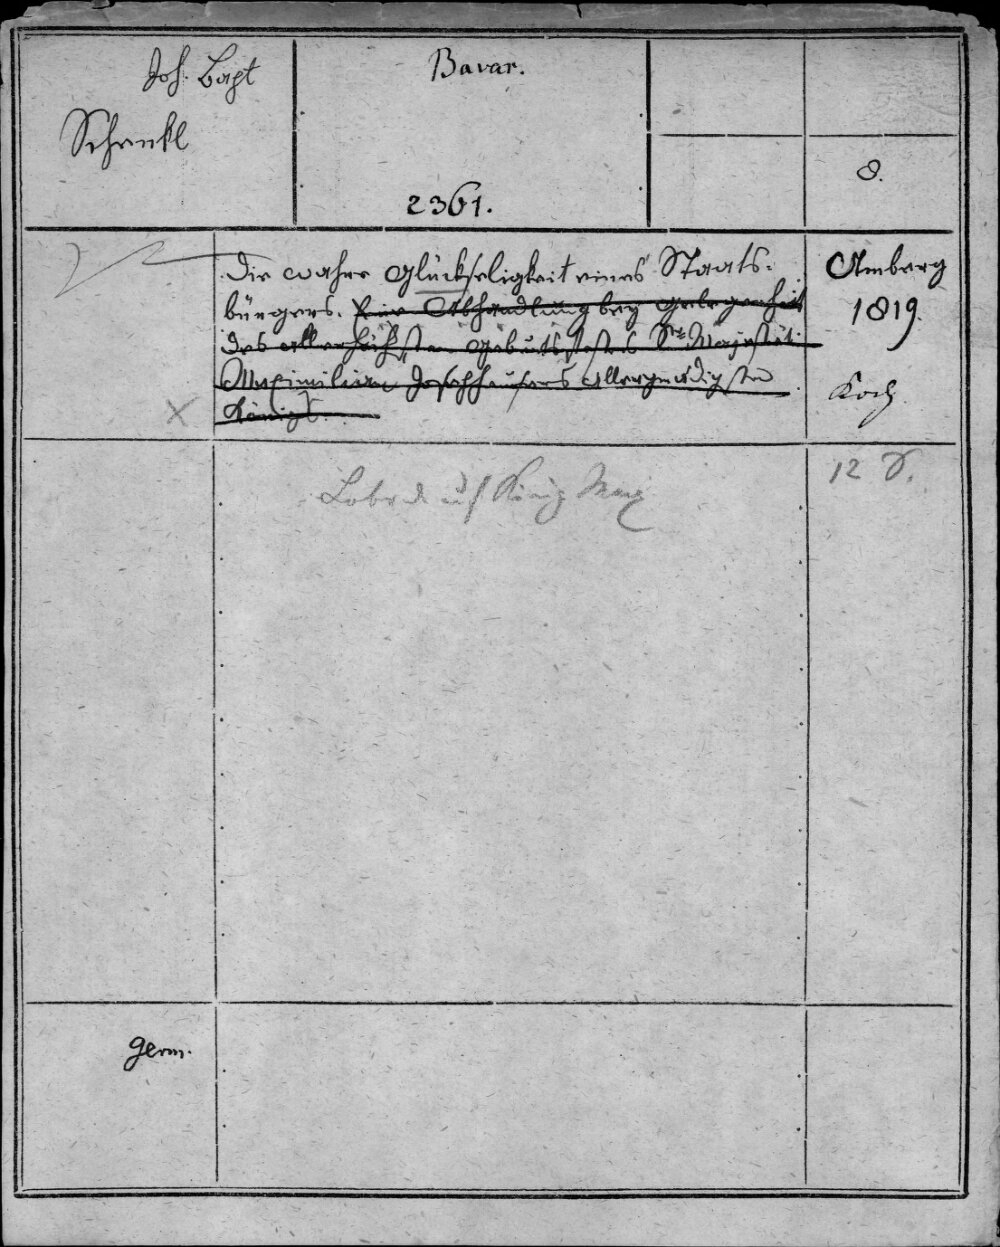 Joh. Bapt
Schenkl
Bavar.
2361.
8.
Die wahre Glückseligkeit eines Staats-
bürgers. Eine Abhandlung bey Gelegenheit
des allerhöchsten Geburtsfestes Sr. Majestät
Maximilian Joseph allergnädigsten
Königs.
Amberg
1819.
Koch
12 S.
auf König Max
germ.